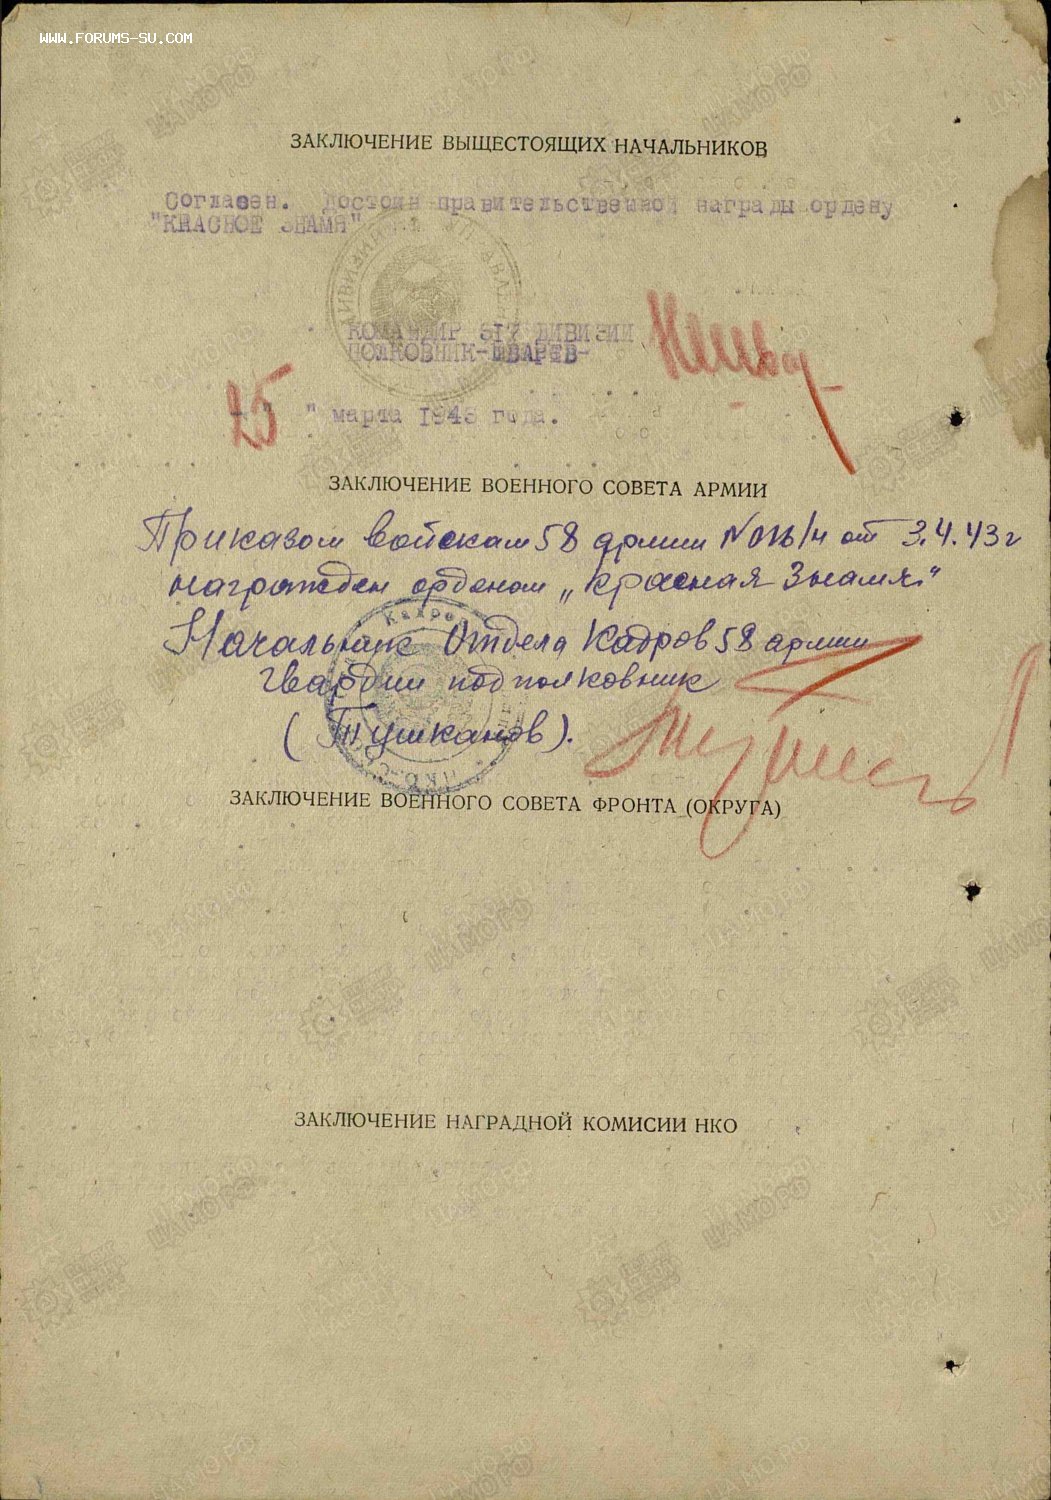 WWW.FORUMS-SU.COM
ЗАКЛЮЧЕНИЕ ВЫЩЕСТОЯЩИХ НАЧАЛЬНИКОВ
Согласен. Достоин правительственной награды ордену
"КРАСНОЕ ЗНАМЯ"
КОМАНДИР 317 ДИВИЗИИ
ПОЛКОВНИК-ШВАРЕВ-
25 " марта 1943 года.
ЗАКЛЮЧЕНИЕ ВОЕННОГО СОВЕТА АРМИИ
Приказом войскам 58 армии № 016/н от 3.4.43г
награжден орденом „Красная Знамя"
Начальник Отдела Кадров 58 армии
Гвардии подполковник
(Тушканов).
ЗАКЛЮЧЕНИЕ ВОЕННОГО СОВЕТА ФРОНТА (ОКРУГА)
ЗАКЛЮЧЕНИЕ НАГРАДНОЙ КОМИСИИ НКО